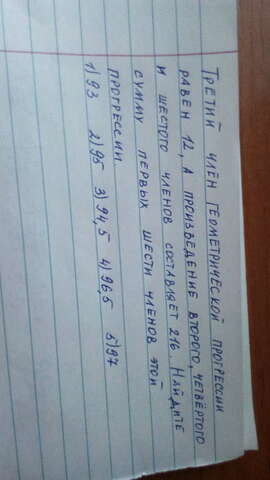 ТРЕТИЙ ЧЛЕН ГЕОМЕТРИЧЕСКОЙ ПРОГРЕССИИ
РАВЕН 12, А ПРОИЗВЕДЕНИЕ ВТОРОГО, ЧЕТВЁРТОГО
И ШЕСТОГО ЧЛЕНОВ СОСТАВЛЯЕТ 216. НАЙДИТЕ
СУММУ ПЕРВЫХ ШЕСТИ ЧЛЕНОВ ЭТОЙ
ПРОГРЕССИИ.
1) 93 2) 95 3) 94,5 4) 96,5 5) 97